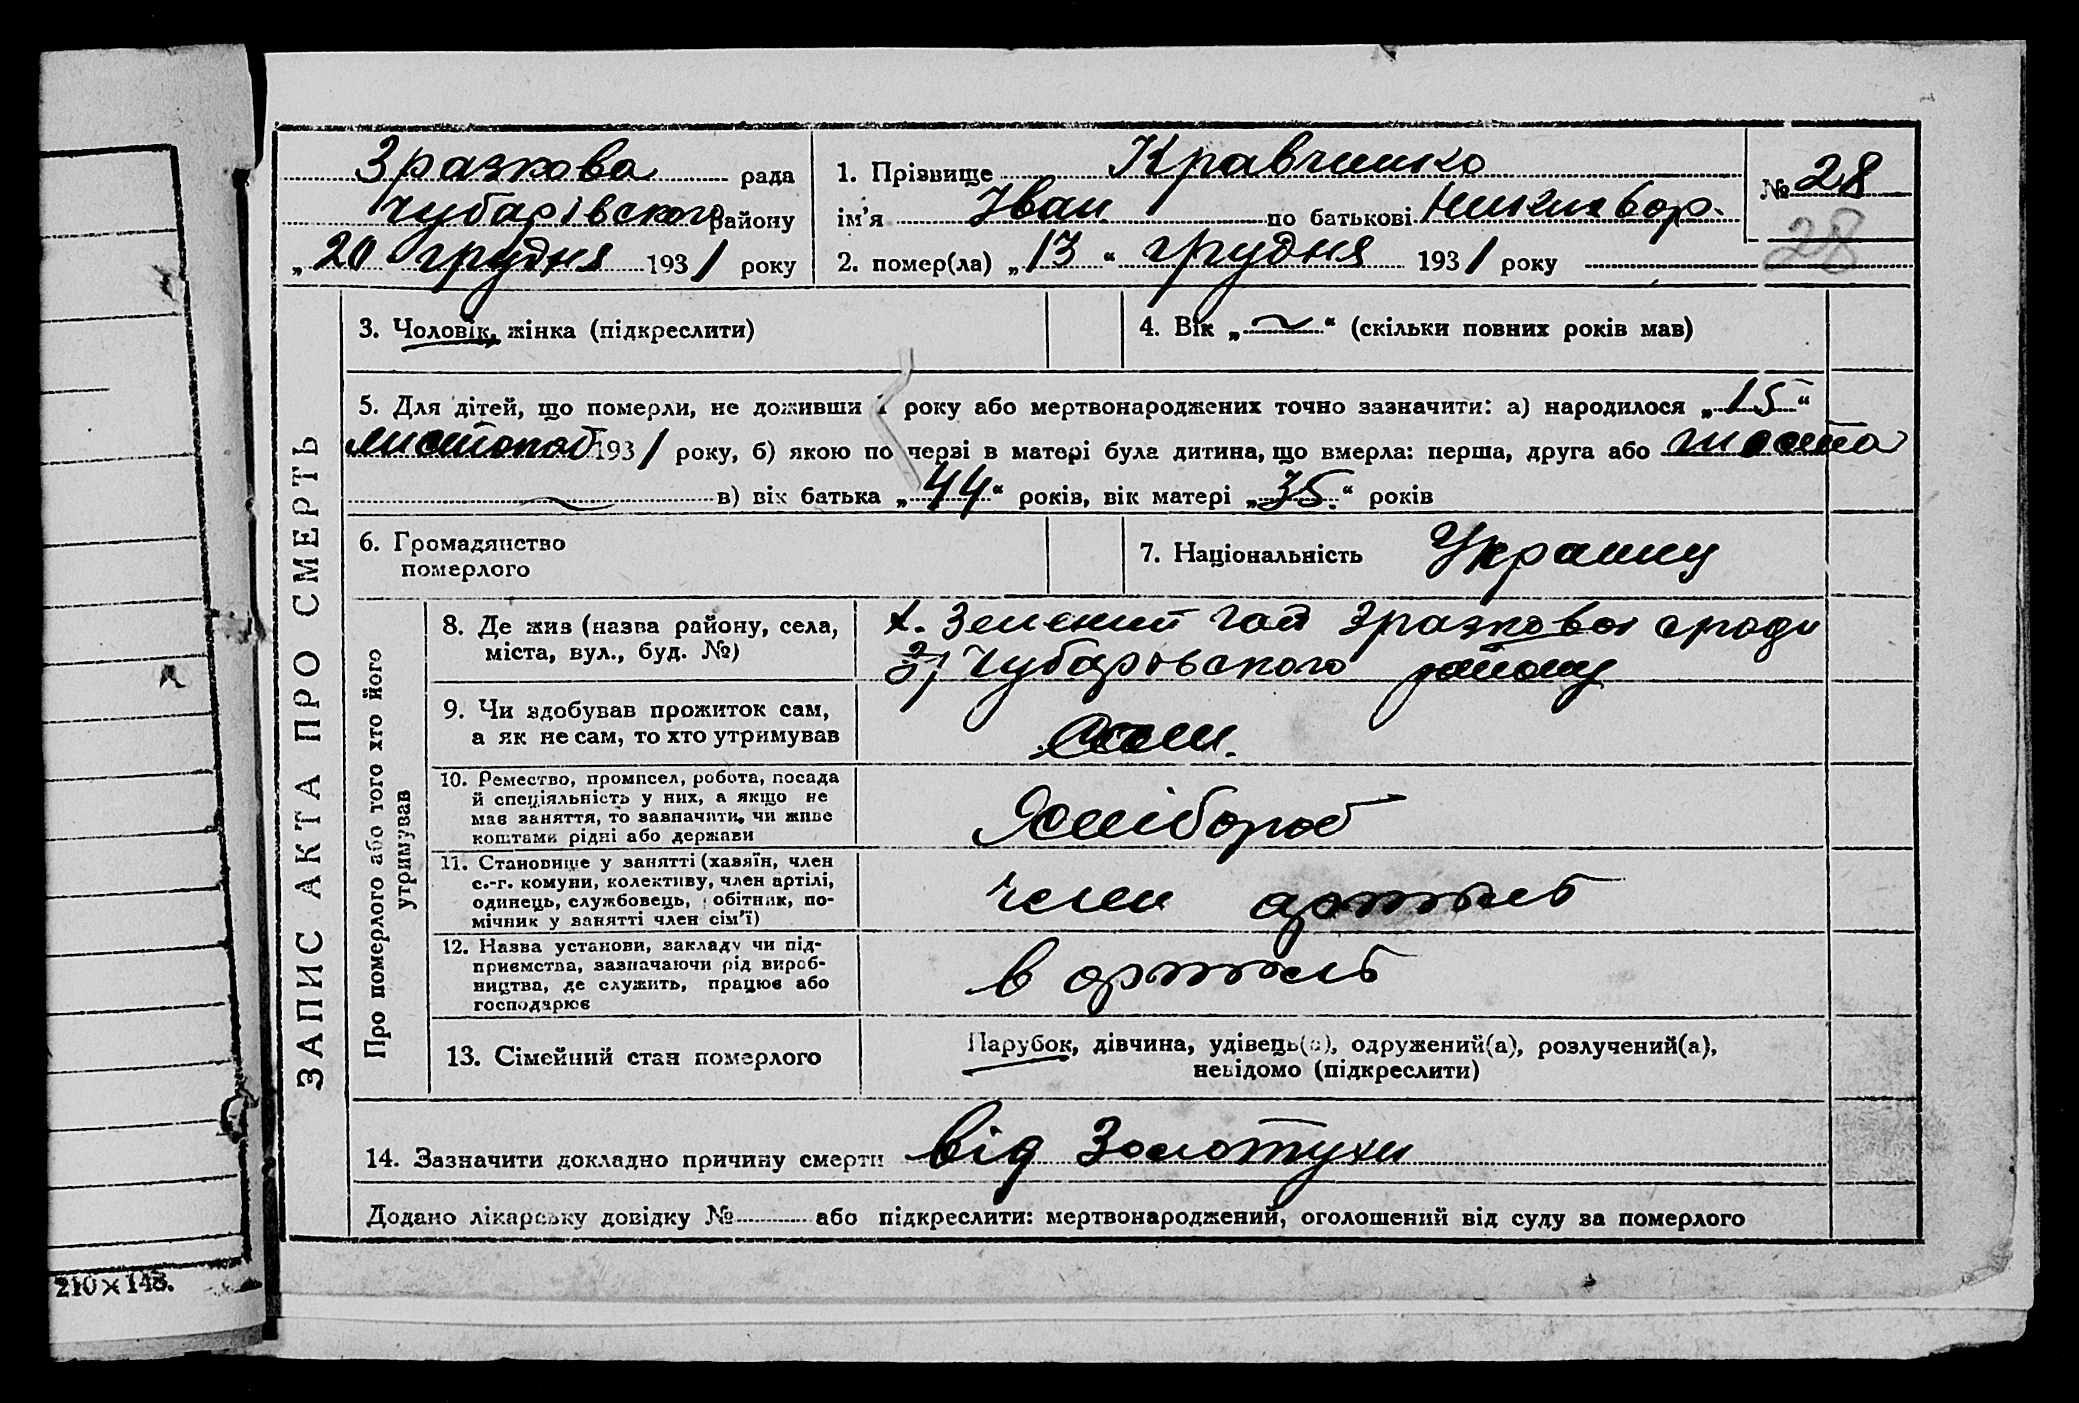 Зразкова рада
Чубарівского району
„20 грудня 1931 року
1. Прізвище Кравченко
ім’я Іван по батькові
2. помер(ла) „13“ грудня 1931 року
№ 28
28
ЗАПИС АКТА ПРО СМЕРТЬ
3. Чоловік, жінка (підкреслити)
4. Вік „ ~ “ (скільки повних років мав)
5. Для дітей, що померли, не доживши 1 року або мертвонароджених точно зазначити: а) народилося „15“
листопад 1931 року, б) якою по черзі в матері була дитина, що вмерла: перша, друга або шоста
в) вік батька „44“ років, вік матері „35“ років
6. Громадянство
померлого
7. Національність Украинц
Про померлого або того хто його
утримував
8. Де жив (назва району, села,
міста, вул., буд. №)
х. Зелений Гай Зразковоі сради
Чубаровского району
9. Чи здобував прожиток сам,
а як не сам, то хто утримував
10. Ремество, промисел, робота, посада
й спеціяльність у них, а якщо не
має заняття, то зазначити, чи живе
коштами рідні або держави
Хлібороб
11. Становище у занятті (хазяїн, член
с.-г. комуни, колективу, член артілі,
одинець, службовець, робітник, по-
мічник у занятті член сім’ї)
член артель
12. Назва установи, закладу чи під-
приємства, зазначаючи рід вироб-
ництва, де служить, працює або
господарює
в артель
13. Сімейний стан померлого
Парубок, дівчина, удівець(а), одружений(а), розлучений(а),
невідомо (підкреслити)
14. Зазначити докладно причину смерти від Золотухи
Додано лікарську довідку № або підкреслити: мертвонароджений, оголошений від суду за померлого
210×148.